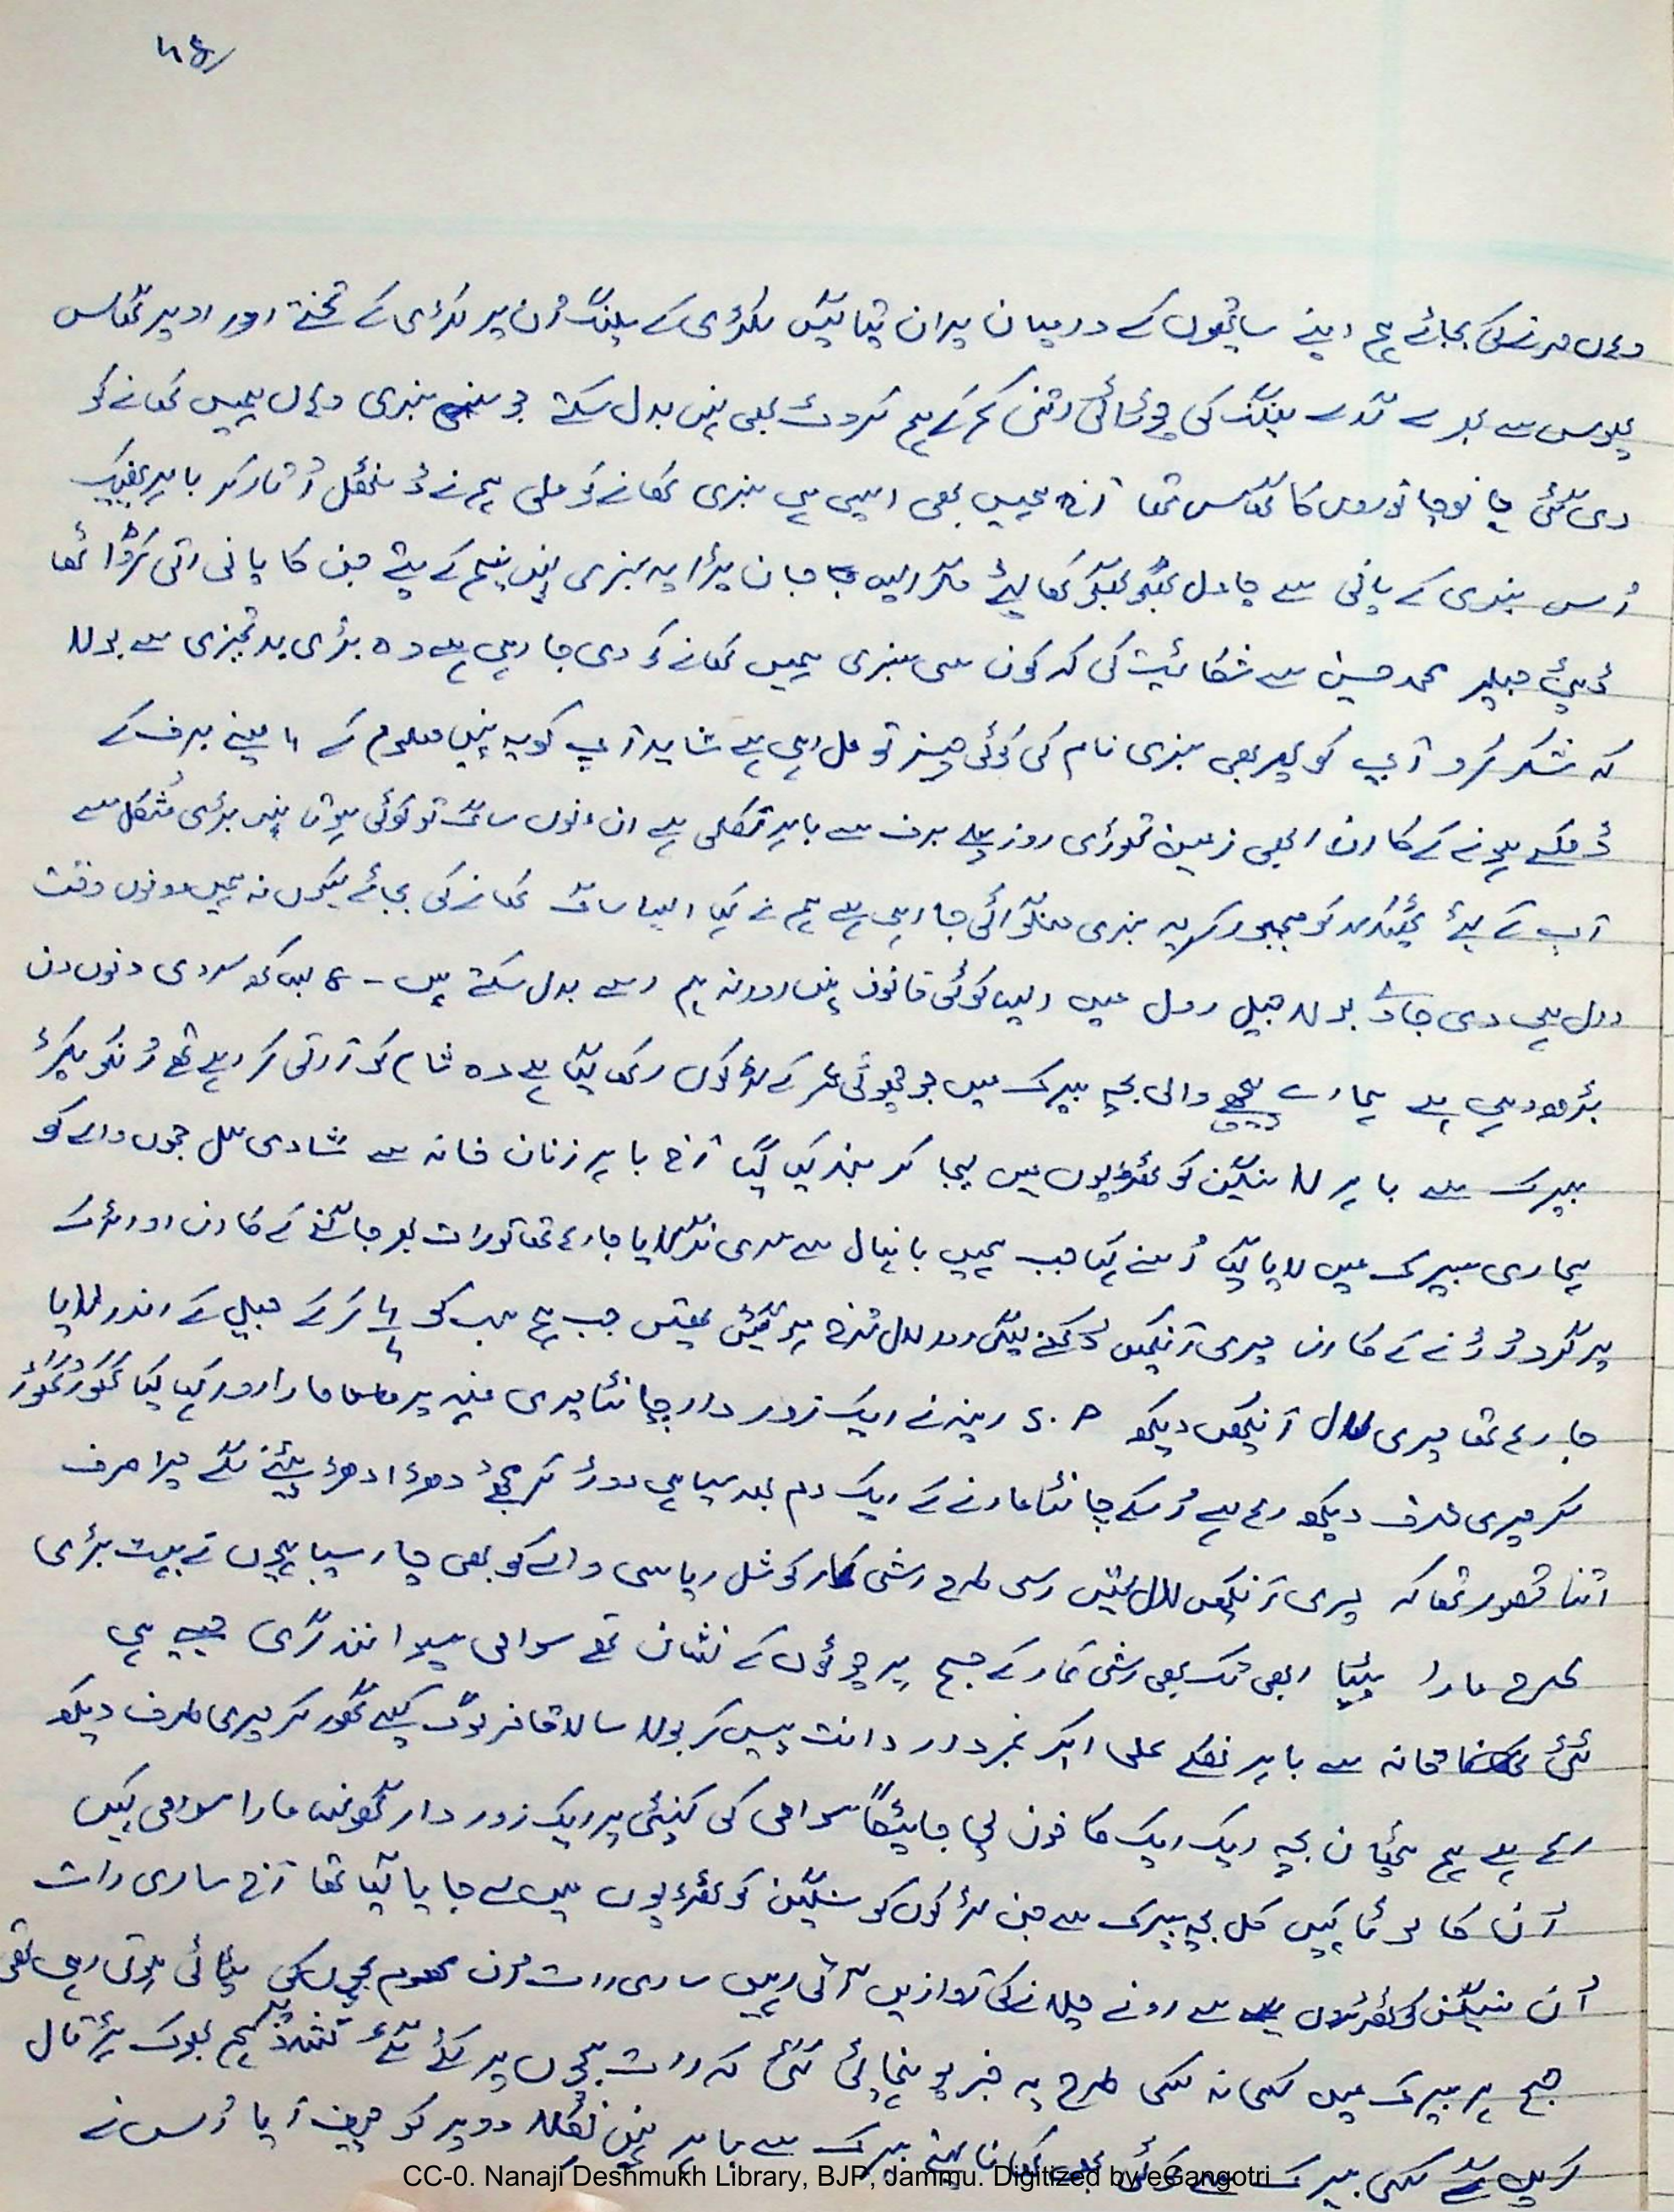 وہاں مرنے کی بجائے ہم اپنے ساتھیوں کے درمیان لکڑی کے پلنگ اُن پر لکڑی کے تختے اور اوپر گھاس
پھوس سے بھرے گدے پلنگ کی چوڑائی اتنی کم کے ہم کروٹ بھی نہیں بدل سکتے جو سبزی وہاں ہمیں کھانے کو
دی گئی جانو جانوروں کا گھاس تھا آج ہمیں بھی ایسی ہی سبزی کھانے کو ملی ہم نے ڈنٹھل اُتار کر باہر پھینک
اُس سبزی کے پانی سے چاول بھگو بھگو کھا لیئے مگر ایسا جان پڑا یہ سبزی نہیں نیم کے پتے جن کا پانی اتنی کڑوا تھا
ڈپٹی جیلر محمد حسین سے شکائیت کی کہ کون سی سبزی ہمیں کھانے کو دی جا رہی ہے وہ بڑی بدتمیزی سے بولا
کہ شکر کرو آپ کو پھر بھی سبزی نام کی کوئی چیز تو مل رہی ہے شاید آپ کو یہ نہیں معلوم کے ۶ مہینے برف کے
ڈھکے ہونے کے کارن ابھی زمین تھوڑی روز پہلے برف سے باہر نکلی ہے ان دنوں ساگ تو کوئی ہوتا نہیں بڑی مُشکل سے
آپ کے لیئے ٹھیکیدار کو مجبور کر یہ سبزی منگوائی جا رہی ہے ہم نے کہا ایسا ساگ کھانے کی بجائے کیوں نہ ہمیں دونوں وقت
دال ہی دی جاے بولا جیل رول میں ایسا کوئی قانون نہیں اور نہ ہم اسے بدل سکتے ہیں - سردی دنوں دن
بڑھ رہی ہے ہمارے پیچھے والی بچہ بیرک میں جو چھوٹی عمر کے لڑکوں رکھا گیا ہے وہ شام کو آرتی کر رہے تھے اُنکو پکڑ
بیرک سے باہر لا سنگین کوٹھڑیوں میں لیجا کر بند کیا گیا آج باہر زنان خانہ سے شادی لال جموں والے کو
ہماری بیرک میں لایا گیا اُسنے کہا جب ہمیں بانہال سے سری نگر لایا جا رہا تھا تو رات بھر جاگنے کے کارن اور سڑک
پر گرد اُڑنے کے کارن میری آنکھیں دُکھنے لگیں اور لال سُرخ ہو گئیں تھیں جب ہم سب کو کر کے جیل کے اندر لایا
جا رہا تھا میری لال آنکھیں دیکھ S.P رینہ نے ایک زور دار چانٹا میری منہ پر مارا اور کہا کیا گھور گھور
کر میری طرف دیکھ رہا ہے اُسکے چانٹا مارنے کے ایک دم بعد سپاہی دوڑ کر مجھے دھڑا دھڑ پیٹنے لگے میرا صرف
اتنا قصور تھا کہ میری آنکھیں لال تھیں اسی طرح رشی کمار کوشل ریاسی والے کو بھی چار سپاہیوں نے بہت بڑی
طرح مارا پیٹا ابھی تک بھی رشی کمار کے جسم پر چوٹوں کے نشان تھے سوامی سیوا نند گری جیسے ہی
ٹٹی خانہ سے باہر نکلے علی اکبر نمبردار دانت پیس کر بولا سالا کافر لوگ کیسے گھور کر میری طرف دیکھ
رہا ہے ہم پٹھان بچہ ایک ایک کا خون پی جائیگا سوامی کی کنپٹی پر ایک زور دار گھونسا مارا سوامی کہیں
اُن کا لوٹا کہیں کل بچہ بیرک سے جن لڑکوں کو سنگین کوٹھڑیوں میں لے جایا گیا تھا آج ساری رات
اُن سنگین کوٹھڑیوں سے رونے چلانے کی آوازیں آتی رہیں ساری رات اُن معصوم بچوں کی پٹائی ہوتی رہی تھی
صبح ہر بیرک میں کسی نہ کسی طرح یہ خبر پہنچائی گئی کہ رات بچوں پر کئے گئے تشدد پر ہم بھوک ہڑتال
کریں گے کسی بیرک سے کوئی بھی کھانا لینے بیرک سے باہر نہیں نکلا دوپہر کو چیف آیا اُس نے
CC-0. Nanaji Deshmukh Library, BJP, Jammu. Digitized by eGangotri